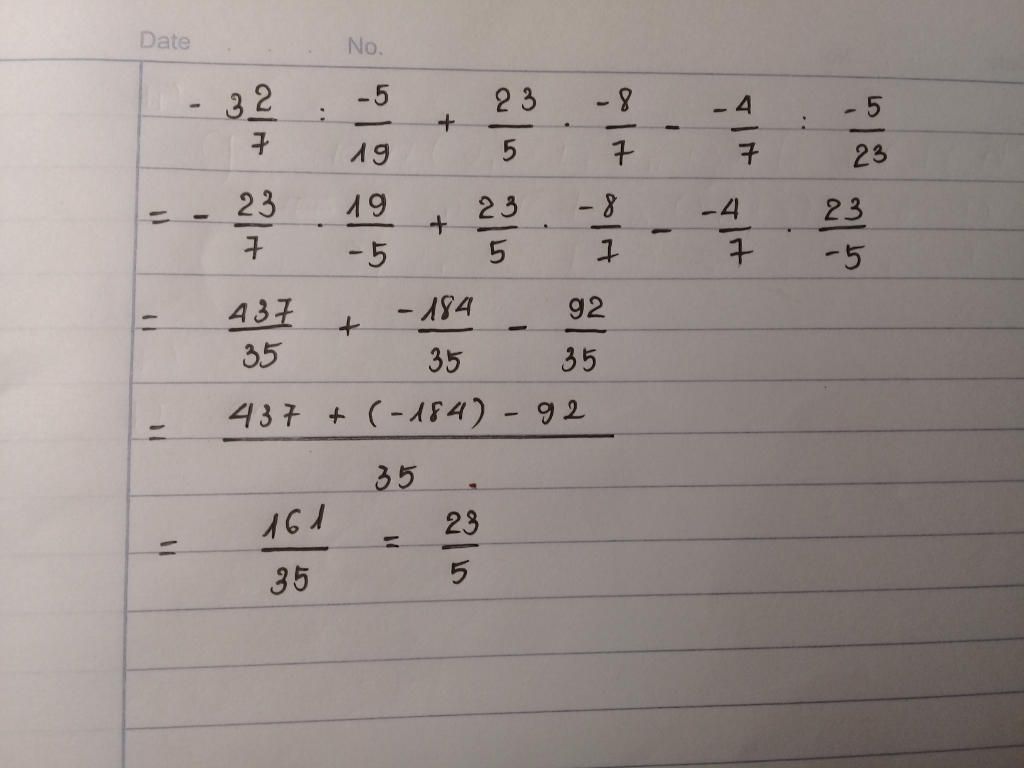 Date . . . No.
- 3 2/7 : -5/19 + 23/5 . -8/7 - -4/7 : -5/23
= - 23/7 . 19/-5 + 23/5 . -8/7 - -4/7 . 23/-5
= 437/35 + -184/35 - 92/35
= 437 + (-184) - 92 / 35
= 161/35 = 23/5